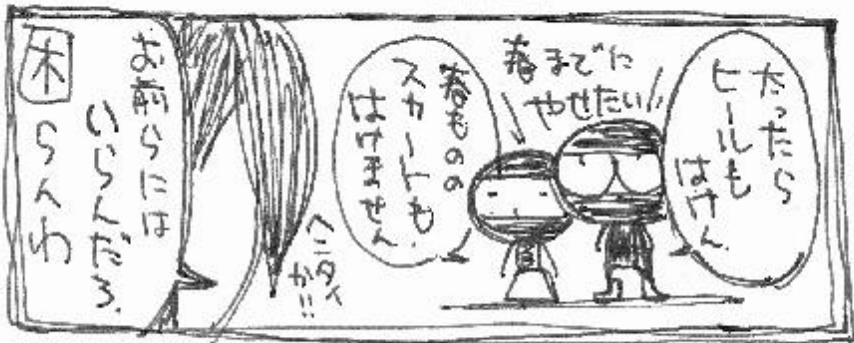 たったら
ヒールも
はけん
春までに
やせたい!!
春ものの
スカートも
はけません
ヘンタイ
か!!
お前らには
いらんだろ
木
らんわ